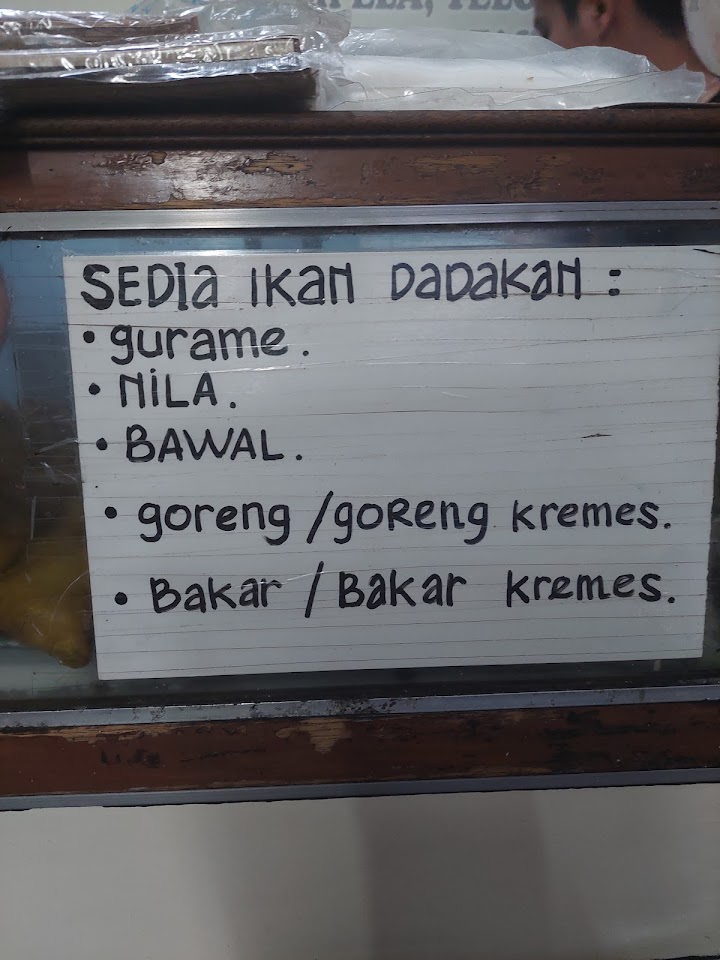 SEDIa IKaN DaDaKaN :
• gurame.
• NiLA.
• BAWAL.
• goreng / goReng kremes.
• Bakar / Bakar kremes.